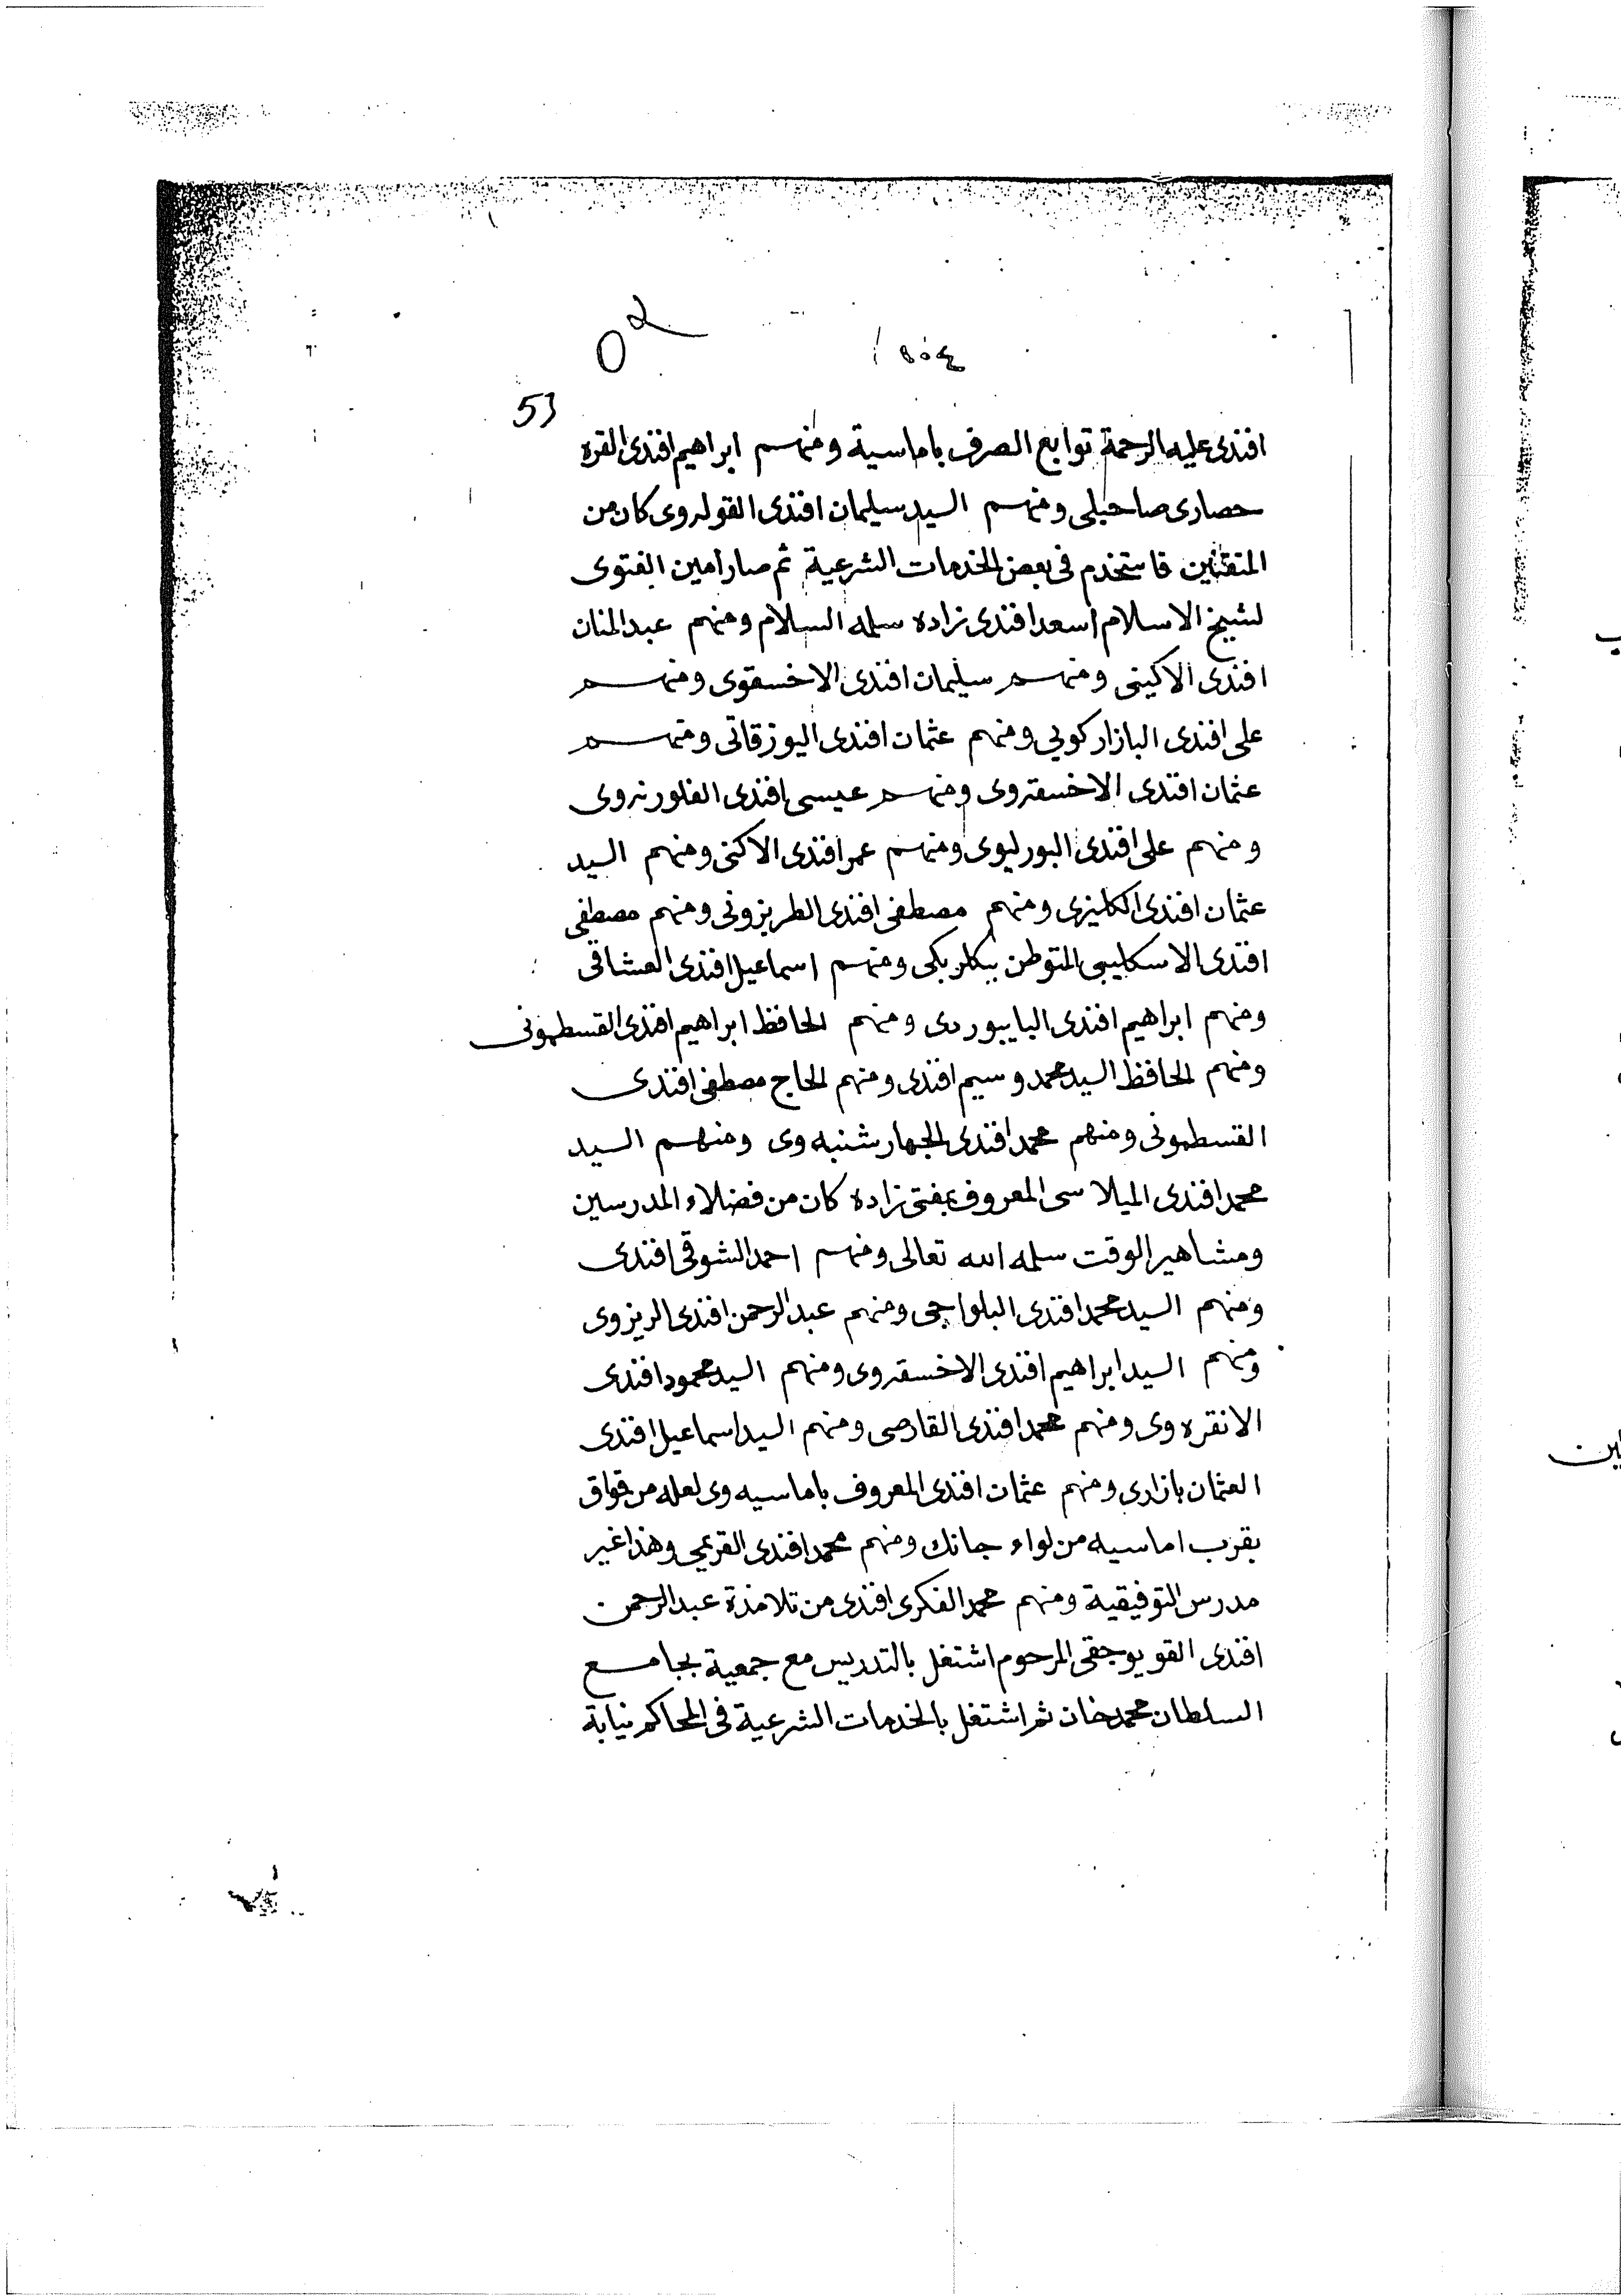 ٥٢
53
افندى عليه الرحمة توابع الصرف باماسية ومنهم ابراهيم افندى القره
حصارى صاحبلى ومنهم السيد سليمان افندى القوله وى كان من
المتقنين فاستخدم فى بعض الخدمات الشرعية ثم صار امين الفتوى
لشيخ الاسلام اسعد افندى زاده سلمه السلام ومنهم عبد المنان
افندى الاكينى ومنهم سليمان افندى الاخسقوى ومنهم
على افندى البازار كويى ومنهم عثمان افندى اليوزقاتى ومنهم
عثمان افندى الاخسقه وى ومنهم عيسى افندى الفلورنه وى
ومنهم على افندى البورليوى ومنهم عمر افندى الاكنى ومنهم السيد
عثمان افندى الكليزى ومنهم مصطفى افندى الطربزونى ومنهم مصطفى
افندى الاسكليبى المتوطن ببكلربكى ومنهم اسماعيل افندى العشاقى
ومنهم ابراهيم افندى البايبوردى ومنهم الحافظ ابراهيم افندى القسطمونى
ومنهم الحافظ السيد محمد وسيم افندى ومنهم الحاج مصطفى افندى
القسطمونى ومنهم محمد افندى الجهارشنبه وى ومنهم السيد
محمد افندى الميلاسى المعروف بمفتى زاده كان من فضلاء المدرسين
ومشاهير الوقت سلمه الله تعالى ومنهم احمد الشوقى افندى
ومنهم السيد محمد افندى اليلواجى ومنهم عبد الرحمن افندى الريزوى
ومنهم السيد ابراهيم افندى الاخسقه وى ومنهم السيد محمود افندى
الانقره وى ومنهم محمد افندى القارصى ومنهم السيد اسماعيل افندى
العثمان بازارى ومنهم عثمان افندى المعروف باماسيه وى لعله من قواق
بقرب اماسيه من لواء جانك ومنهم محمد افندى القريمى وهذا غير
مدرس التوفيقية ومنهم محمد الفكرى افندى من تلامذة عبد الرحمن
افندى القويوجقى المرحوم اشتغل بالتدريس مع جمعية بجامع
السلطان محمد خان ثم اشتغل بالخدمات الشرعية فى المحاكم نيابة